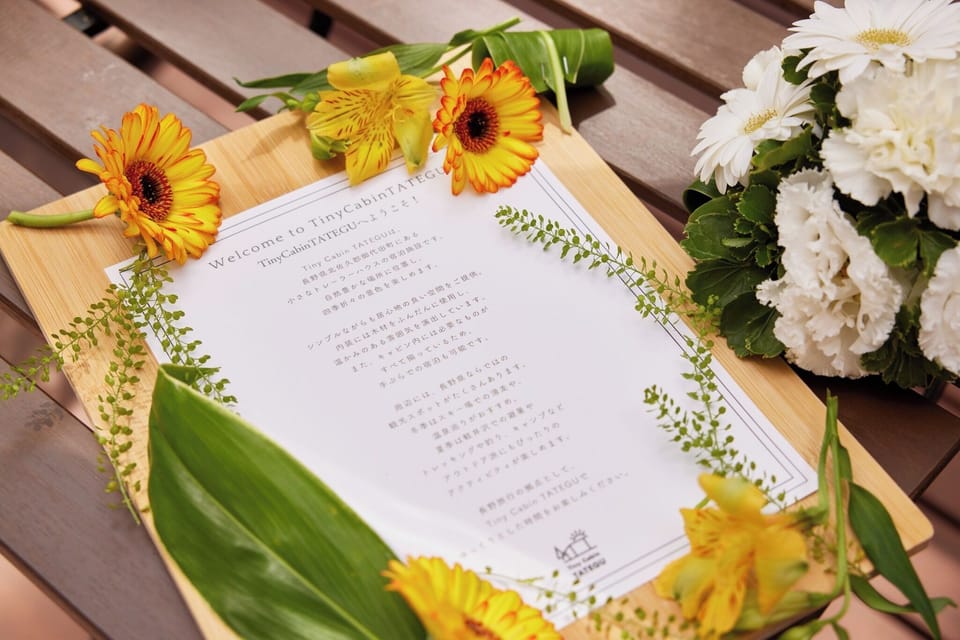 Welcome to TinyCabinTATEGU
TinyCabinTATEGUへようこそ！
Tiny Cabin TATEGUは、
長野県北佐久郡御代田町にある
小さなトレーラーハウスの宿泊施設です。
自然豊かな場所に位置し、
四季折々の景色を楽しめます。
シンプルながらも居心地の良い空間をご提供。
内装には木材をふんだんに使用し、
温かみのある雰囲気を演出しています。
また、キャビン内には必要なものが
すべて揃っているため、
手ぶらでの宿泊も可能です。
周辺には、長野県ならではの
観光スポットがたくさんあります。
冬季はスキー場での滑走や、
温泉巡りがおすすめ。
夏季は軽井沢での避暑や
トレッキングや釣り、キャンプなど
アウトドア派にもぴったりの
アクティビティが楽しめます。
長野旅行の拠点として、
Tiny Cabin TATEGUで
とした時間をお楽しみください。
Tiny Cabin
TATEGU